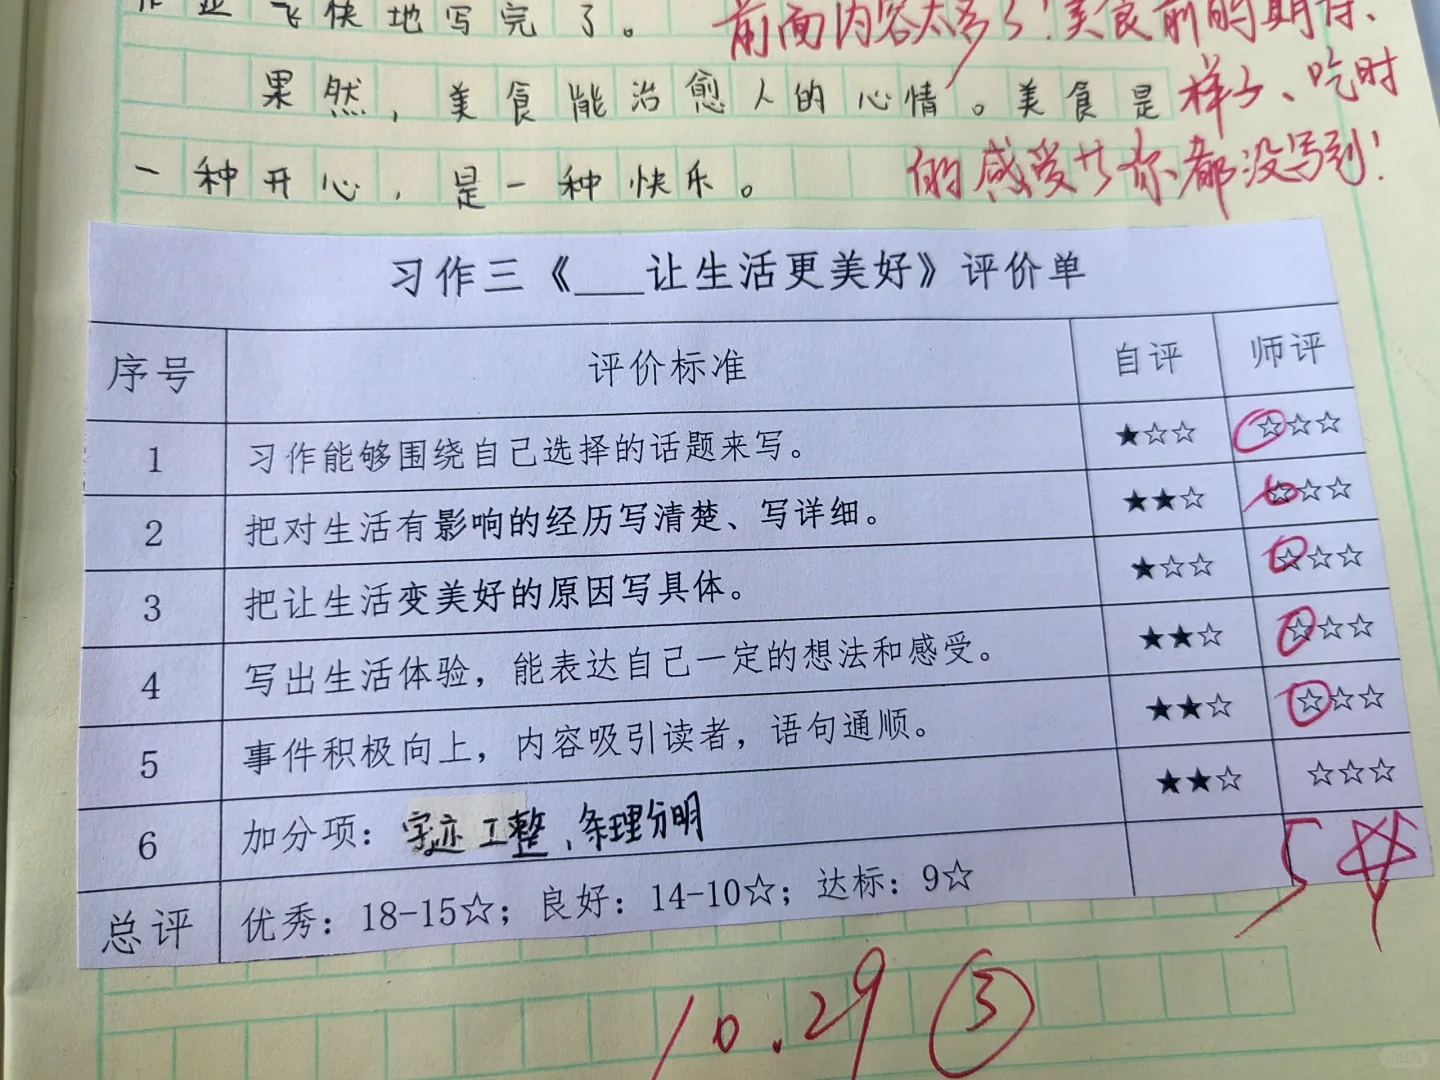 作业飞快地写完了。 前面内容太多了！美食前的期待、
果然，美食能治愈人的心情。美食是 样子、吃时
一种开心，是一种快乐。 的感受廿你都没写到！
习作三《___让生活更美好》评价单
序号 评价标准 自评 师评
1 习作能够围绕自己选择的话题来写。 ★☆☆ ☆☆☆
2 把对生活有影响的经历写清楚、写详细。 ★★☆ ☆☆☆
3 把让生活变美好的原因写具体。 ★☆☆ ☆☆☆
4 写出生活体验，能表达自己一定的想法和感受。 ★★☆ ☆☆☆
5 事件积极向上，内容吸引读者，语句通顺。 ★★☆ ☆☆☆
6 加分项：字迹工整、条理分明 ★★☆ ☆☆☆
总评 优秀：18-15☆；良好：14-10☆；达标：9☆ 5☆
10.29 ③
小红书